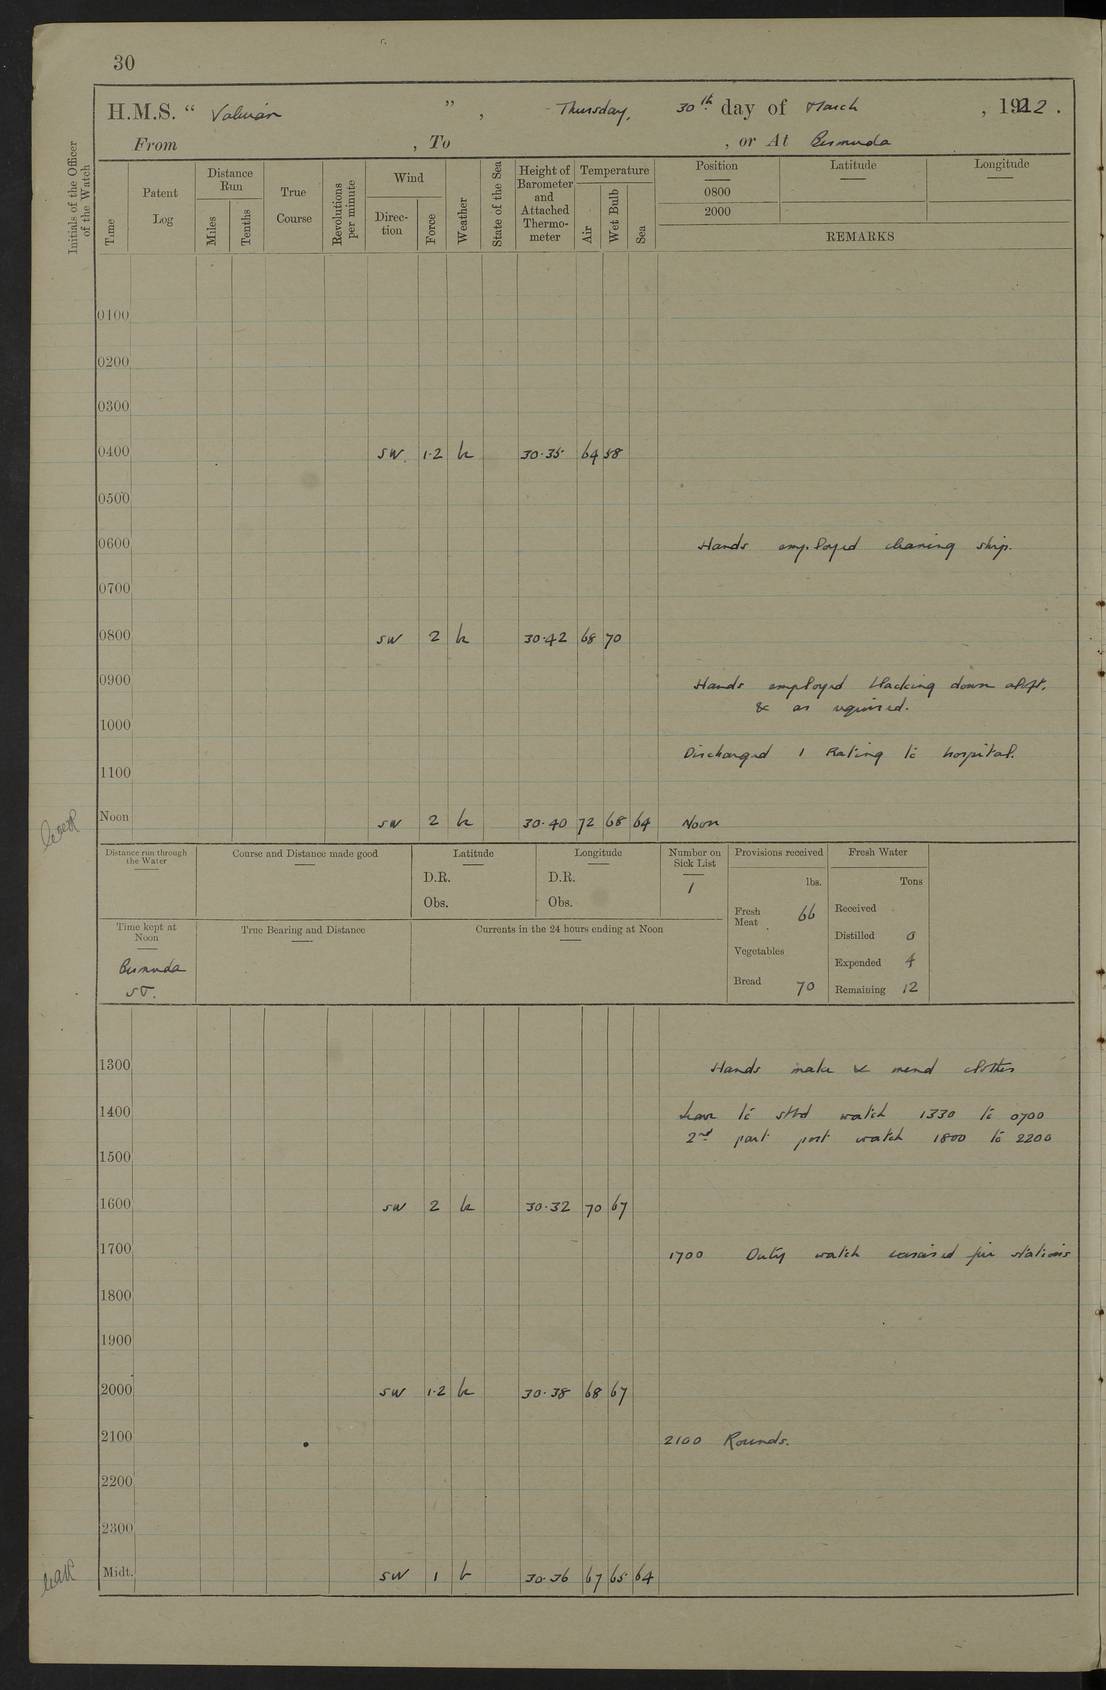 30
H.M.S. " Valerian " , Thursday, 30th day of March , 1922 .
From , To , or At Bermuda
Initials of the Officer of the Watch
Time
Patent Log
Distance Run
Miles
Tenths
True Course
Revolutions per minute
Wind
Direc-tion
Force
Weather
State of the Sea
Height of Barometer and Attached Thermo-meter
Temperature
Air
Wet Bulb
Sea
Position Latitude Longitude
0800
2000
REMARKS
0100
0200
0300
0400 SW 1·2 b 30·35 64 58
0500
0600 Hands employed cleaning ship.
0700
0800 SW 2 b 30·42 68 70
0900 Hands employed blacking down aloft,
& as required.
1000
Discharged 1 Rating to hospital.
1100
Noon SW 2 b 30·40 72 68 64 Noon
Distance run through the Water
Course and Distance made good
Latitude
D.R.
Obs.
Longitude
D.R.
Obs.
Number on Sick List
1
Provisions received
lbs.
Fresh Meat 66
Vegetables
Bread 70
Fresh Water
Tons
Received
Distilled 0
Expended 4
Remaining 12
Time kept at Noon
Bermuda
ST.
True Bearing and Distance
Currents in the 24 hours ending at Noon
1300 Hands make & mend clothes
1400 Leave to stbd watch 1330 to 0700
2nd part port watch 1800 to 2200
1500
1600 SW 2 b 30·32 70 67
1700 1700 Duty watch exercised fire stations
1800
1900
2000 SW 1·2 b 30·38 68 67
2100 2100 Rounds.
2200
2300
Midt. SW 1 b 30·36 67 65 64